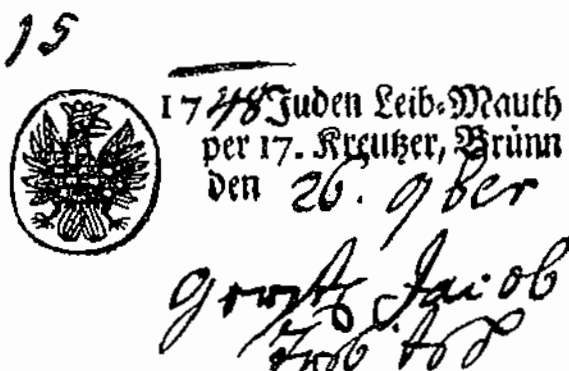 15
1748 Juden Leib-Mauth
per 17. Kreutzer, Brünn
den 26. 9ber
Jacob